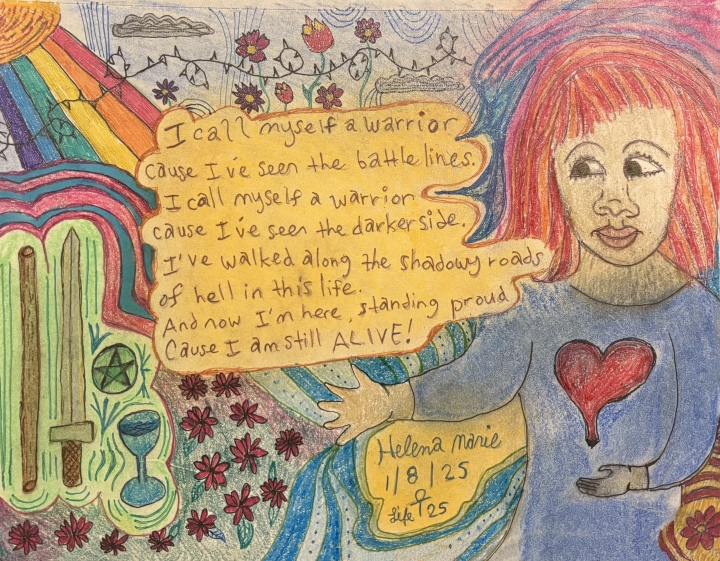 I call myself a warrior
cause I've seen the battle lines.
I call myself a warrior
cause I've seen the darker side.
I've walked along the shadowy roads
of hell in this life.
And now I'm here, standing proud
Cause I am still ALIVE!
Helena Marie
1/8/25
Life 25